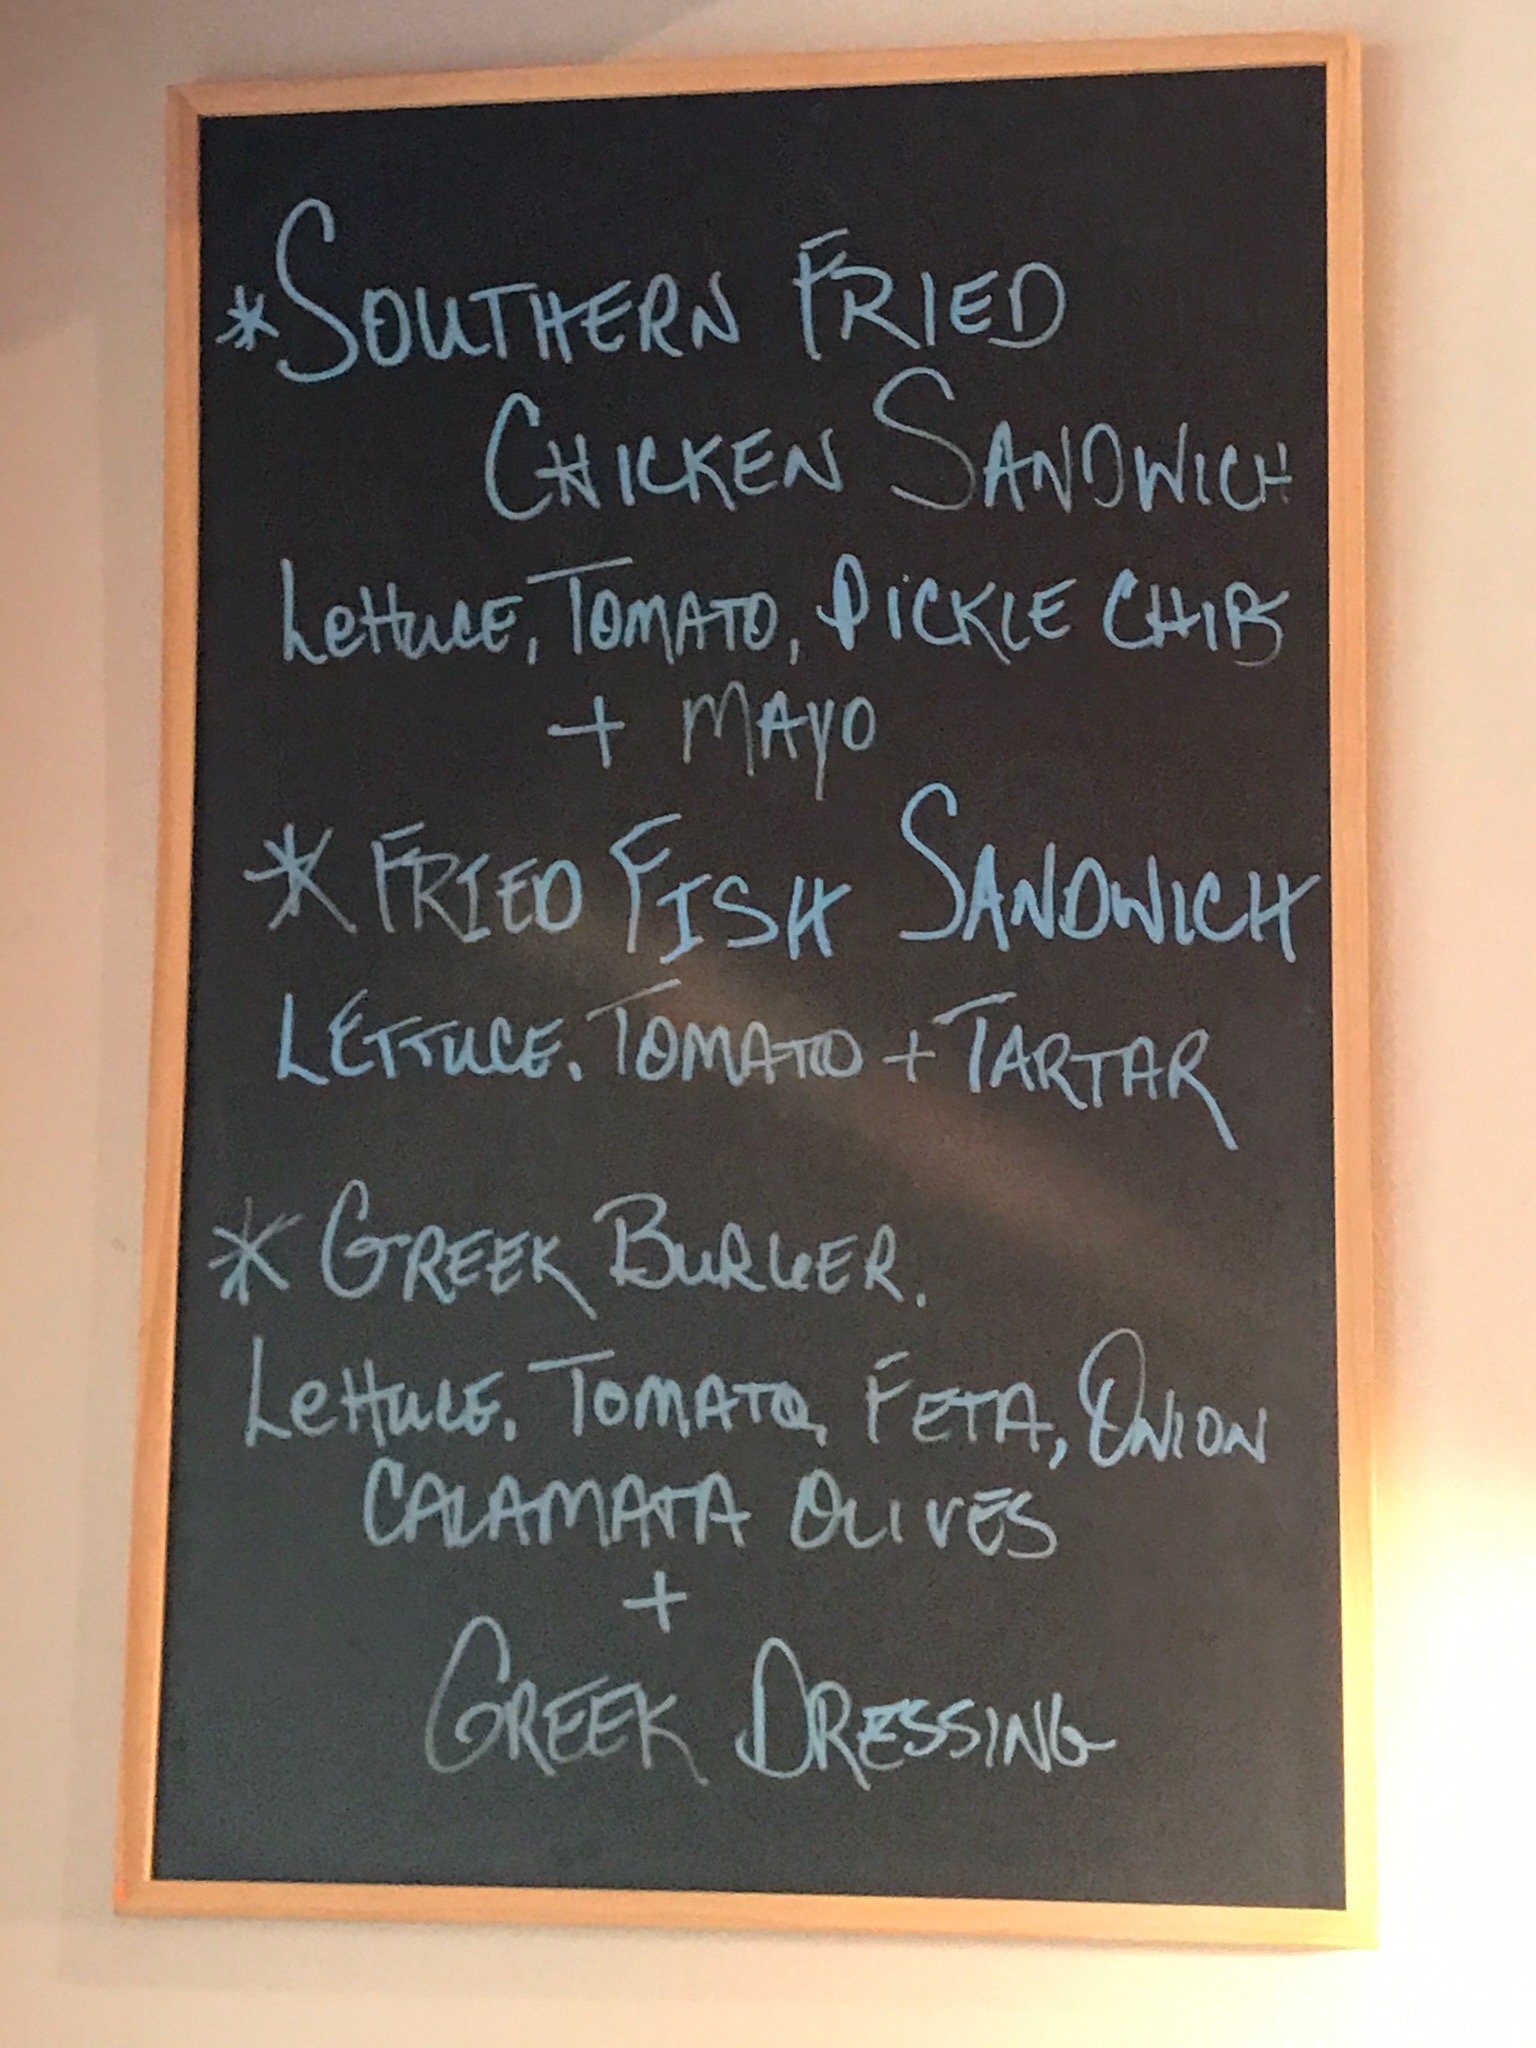 *SOUTHERN FRIED
CHICKEN SANDWICH
LETTUCE, TOMATO, PICKLE CHIPS
+ MAYO
* FRIED FISH SANDWICH
LETTUCE, TOMATO + TARTAR
* GREEK BURGER.
LETTUCE, TOMATO, FETA, ONION
CALAMATA OLIVES
+
GREEK DRESSING